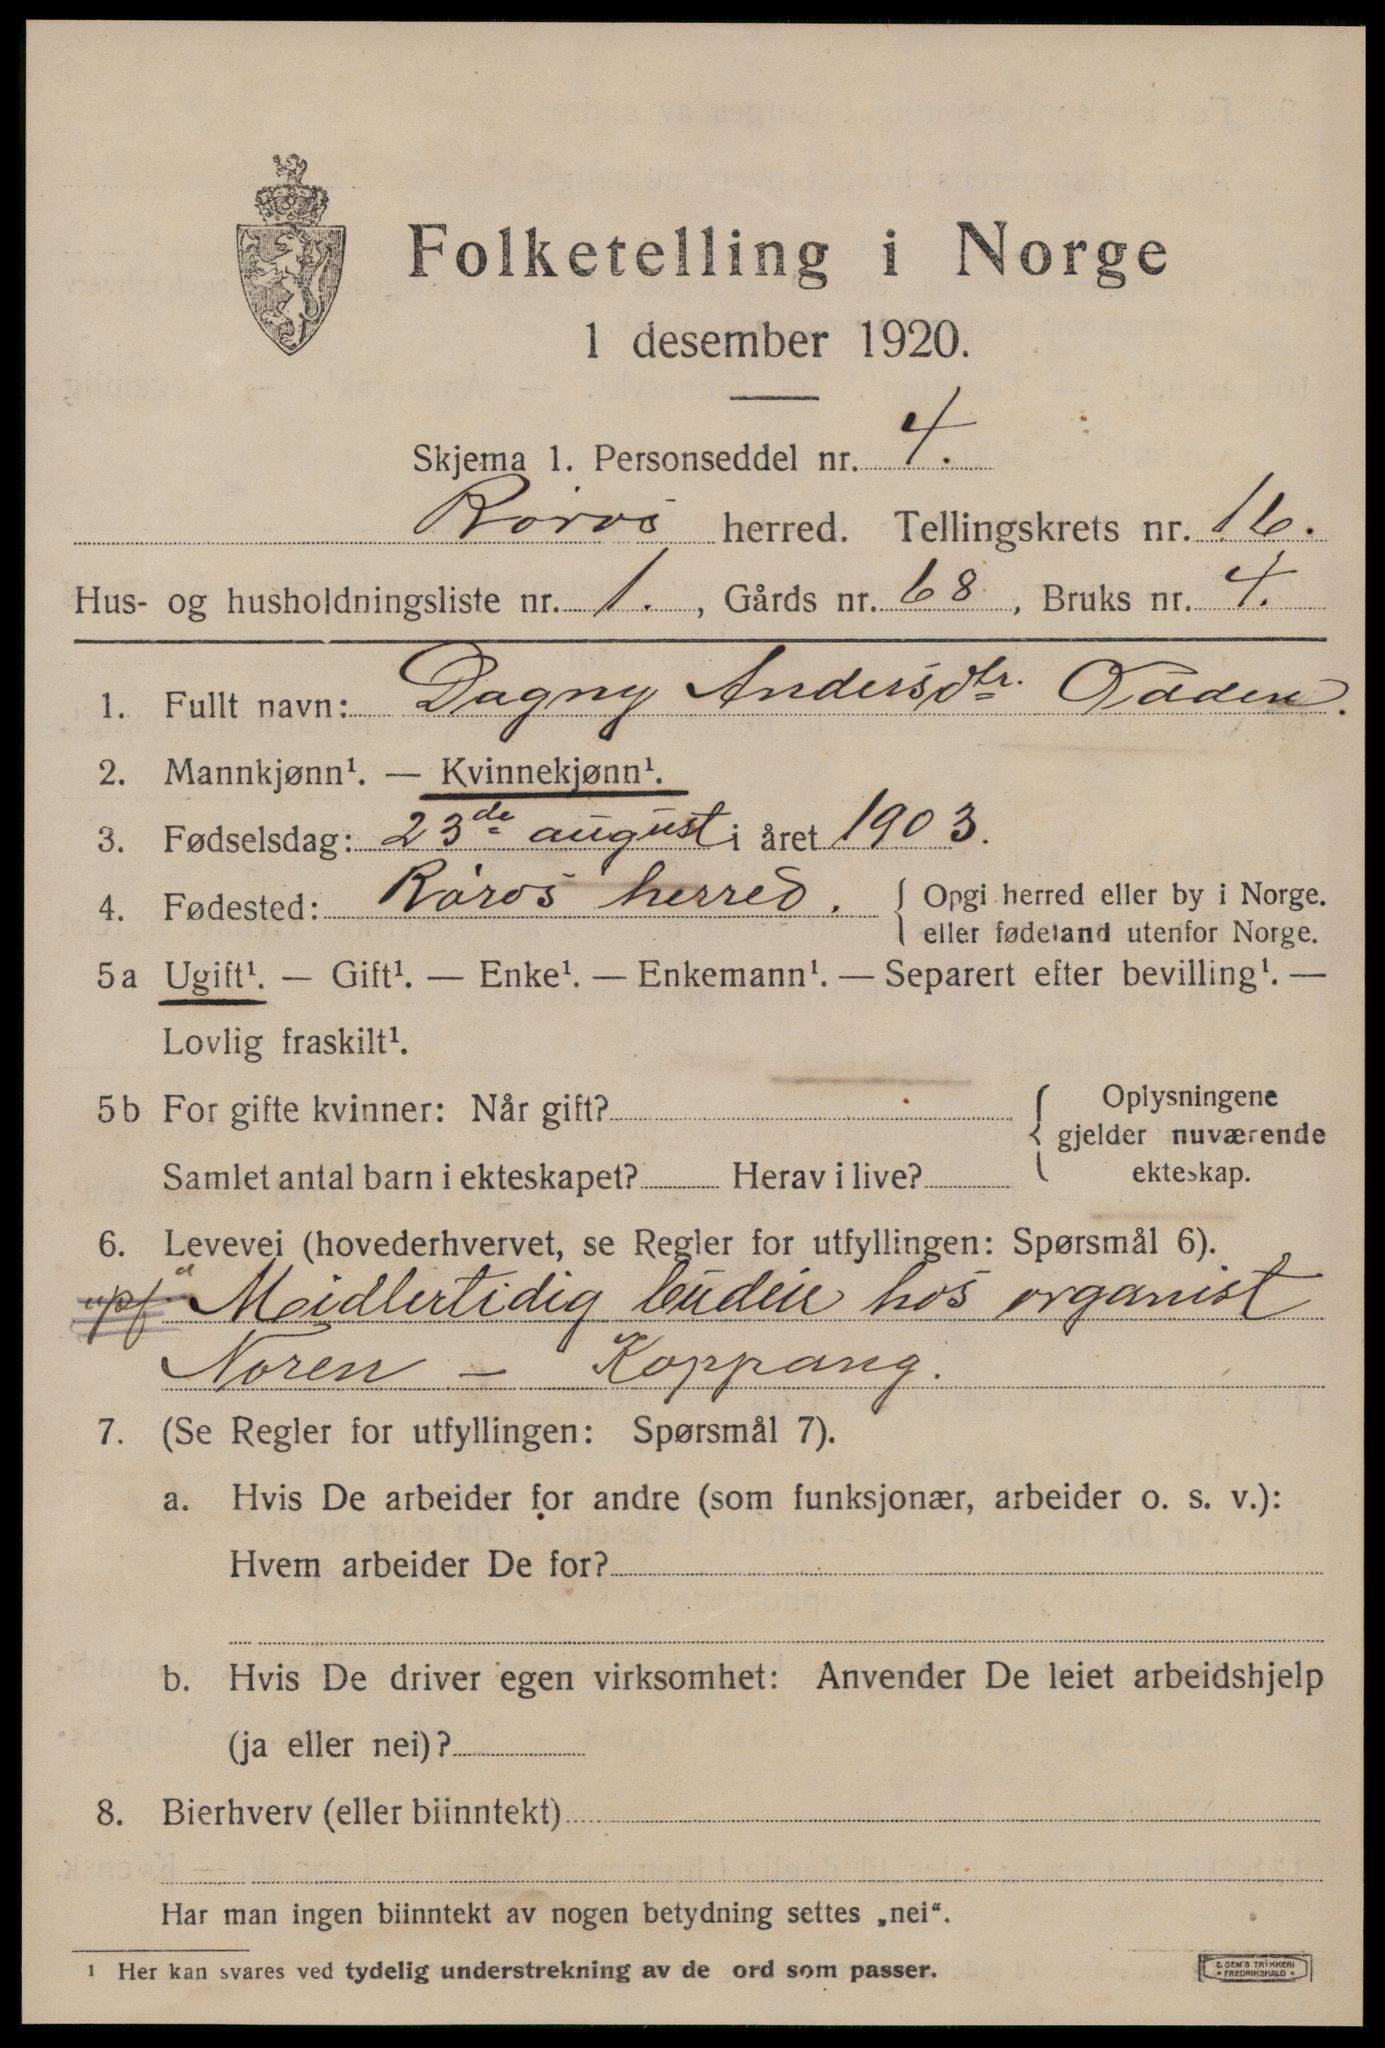 Folketelling i Norge
1 desember 1920.
Skjema 1. Personseddel nr. 4.
Røros herred. Tellingskrets nr. 16.
Hus- og husholdningsliste nr. 1., Gårds nr. 68, Bruks nr. 4.
1. Fullt navn: Dagny Andersdtr. Odden.
2. Mannkjønn¹. — Kvinnekjønn¹.
3. Fødselsdag: 23de august i året 1903.
4. Fødested: Røros herred. { Opgi herred eller by i Norge.
eller fødeland utenfor Norge.
5a Ugift¹. — Gift¹. — Enke¹. — Enkemann¹. — Separert efter bevilling¹. —
Lovlig fraskilt¹.
5b For gifte kvinner: Når gift? { Oplysningene
gjelder nuværende
Samlet antal barn i ekteskapet? Herav i live? ekteskap.
6. Levevei (hovederhvervet, se Regler for utfyllingen: Spørsmål 6).
Midlertidig budeie hos organist
Noren — Koppang.
7. (Se Regler for utfyllingen: Spørsmål 7).
a. Hvis De arbeider for andre (som funksjonær, arbeider o. s. v.):
Hvem arbeider De for?
b. Hvis De driver egen virksomhet: Anvender De leiet arbeidshjelp
(ja eller nei)?
8. Bierhverv (eller biinntekt)
Har man ingen biinntekt av nogen betydning settes „nei“.
¹ Her kan svares ved tydelig understrekning av de ord som passer.
E. SEM'S TRYKKERI
FREDRIKSHALD